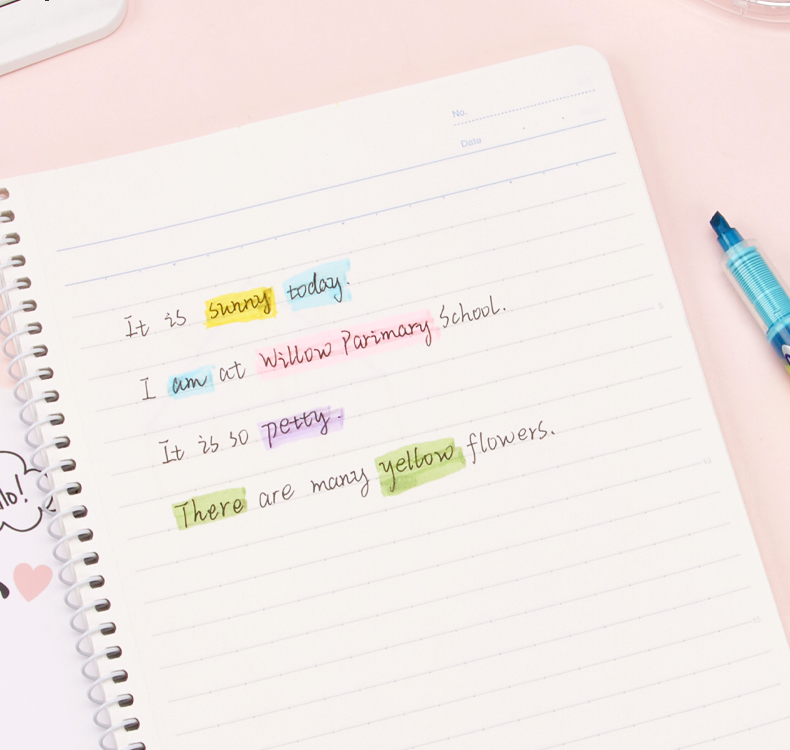 No.
Date
It is sunny today.
I am at Willow Parimary School.
It is so petty.
There are many yellow flowers.
5
10
15